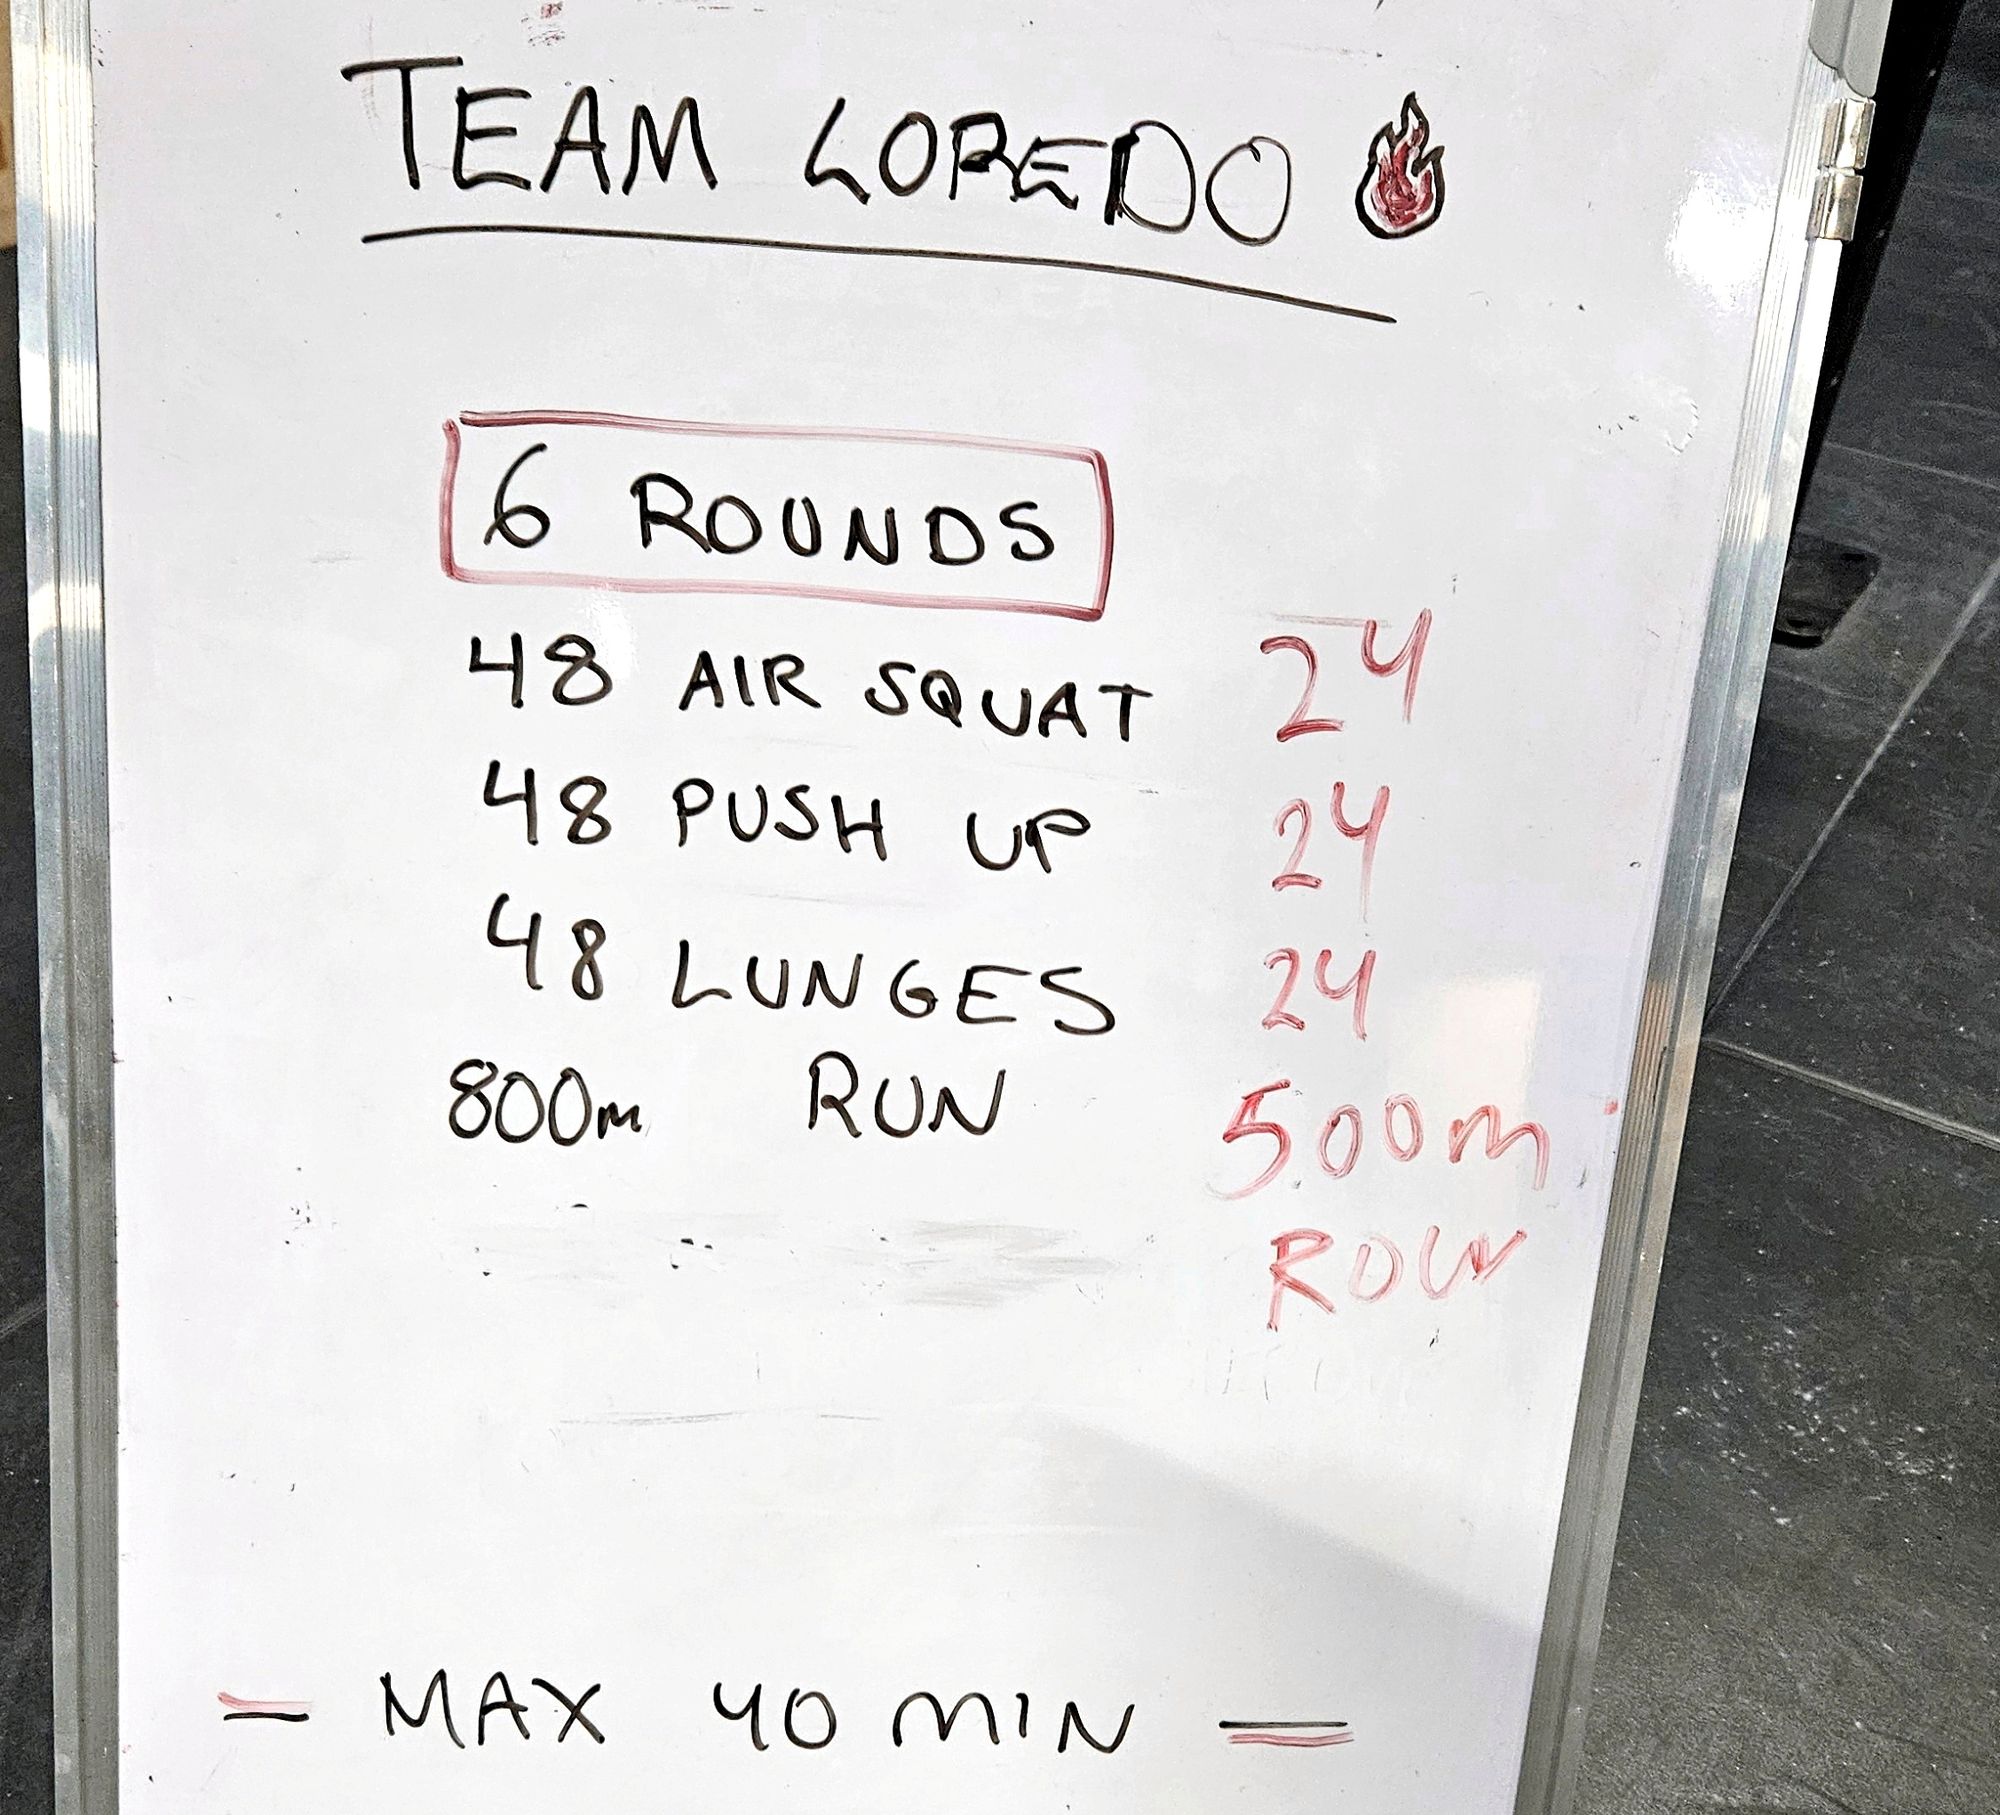 TEAM LOREDO
6 ROUNDS
48 AIR SQUAT 24
48 PUSH UP 24
48 LUNGES 24
800m RUN 500m
ROW
MAX 40 MIN